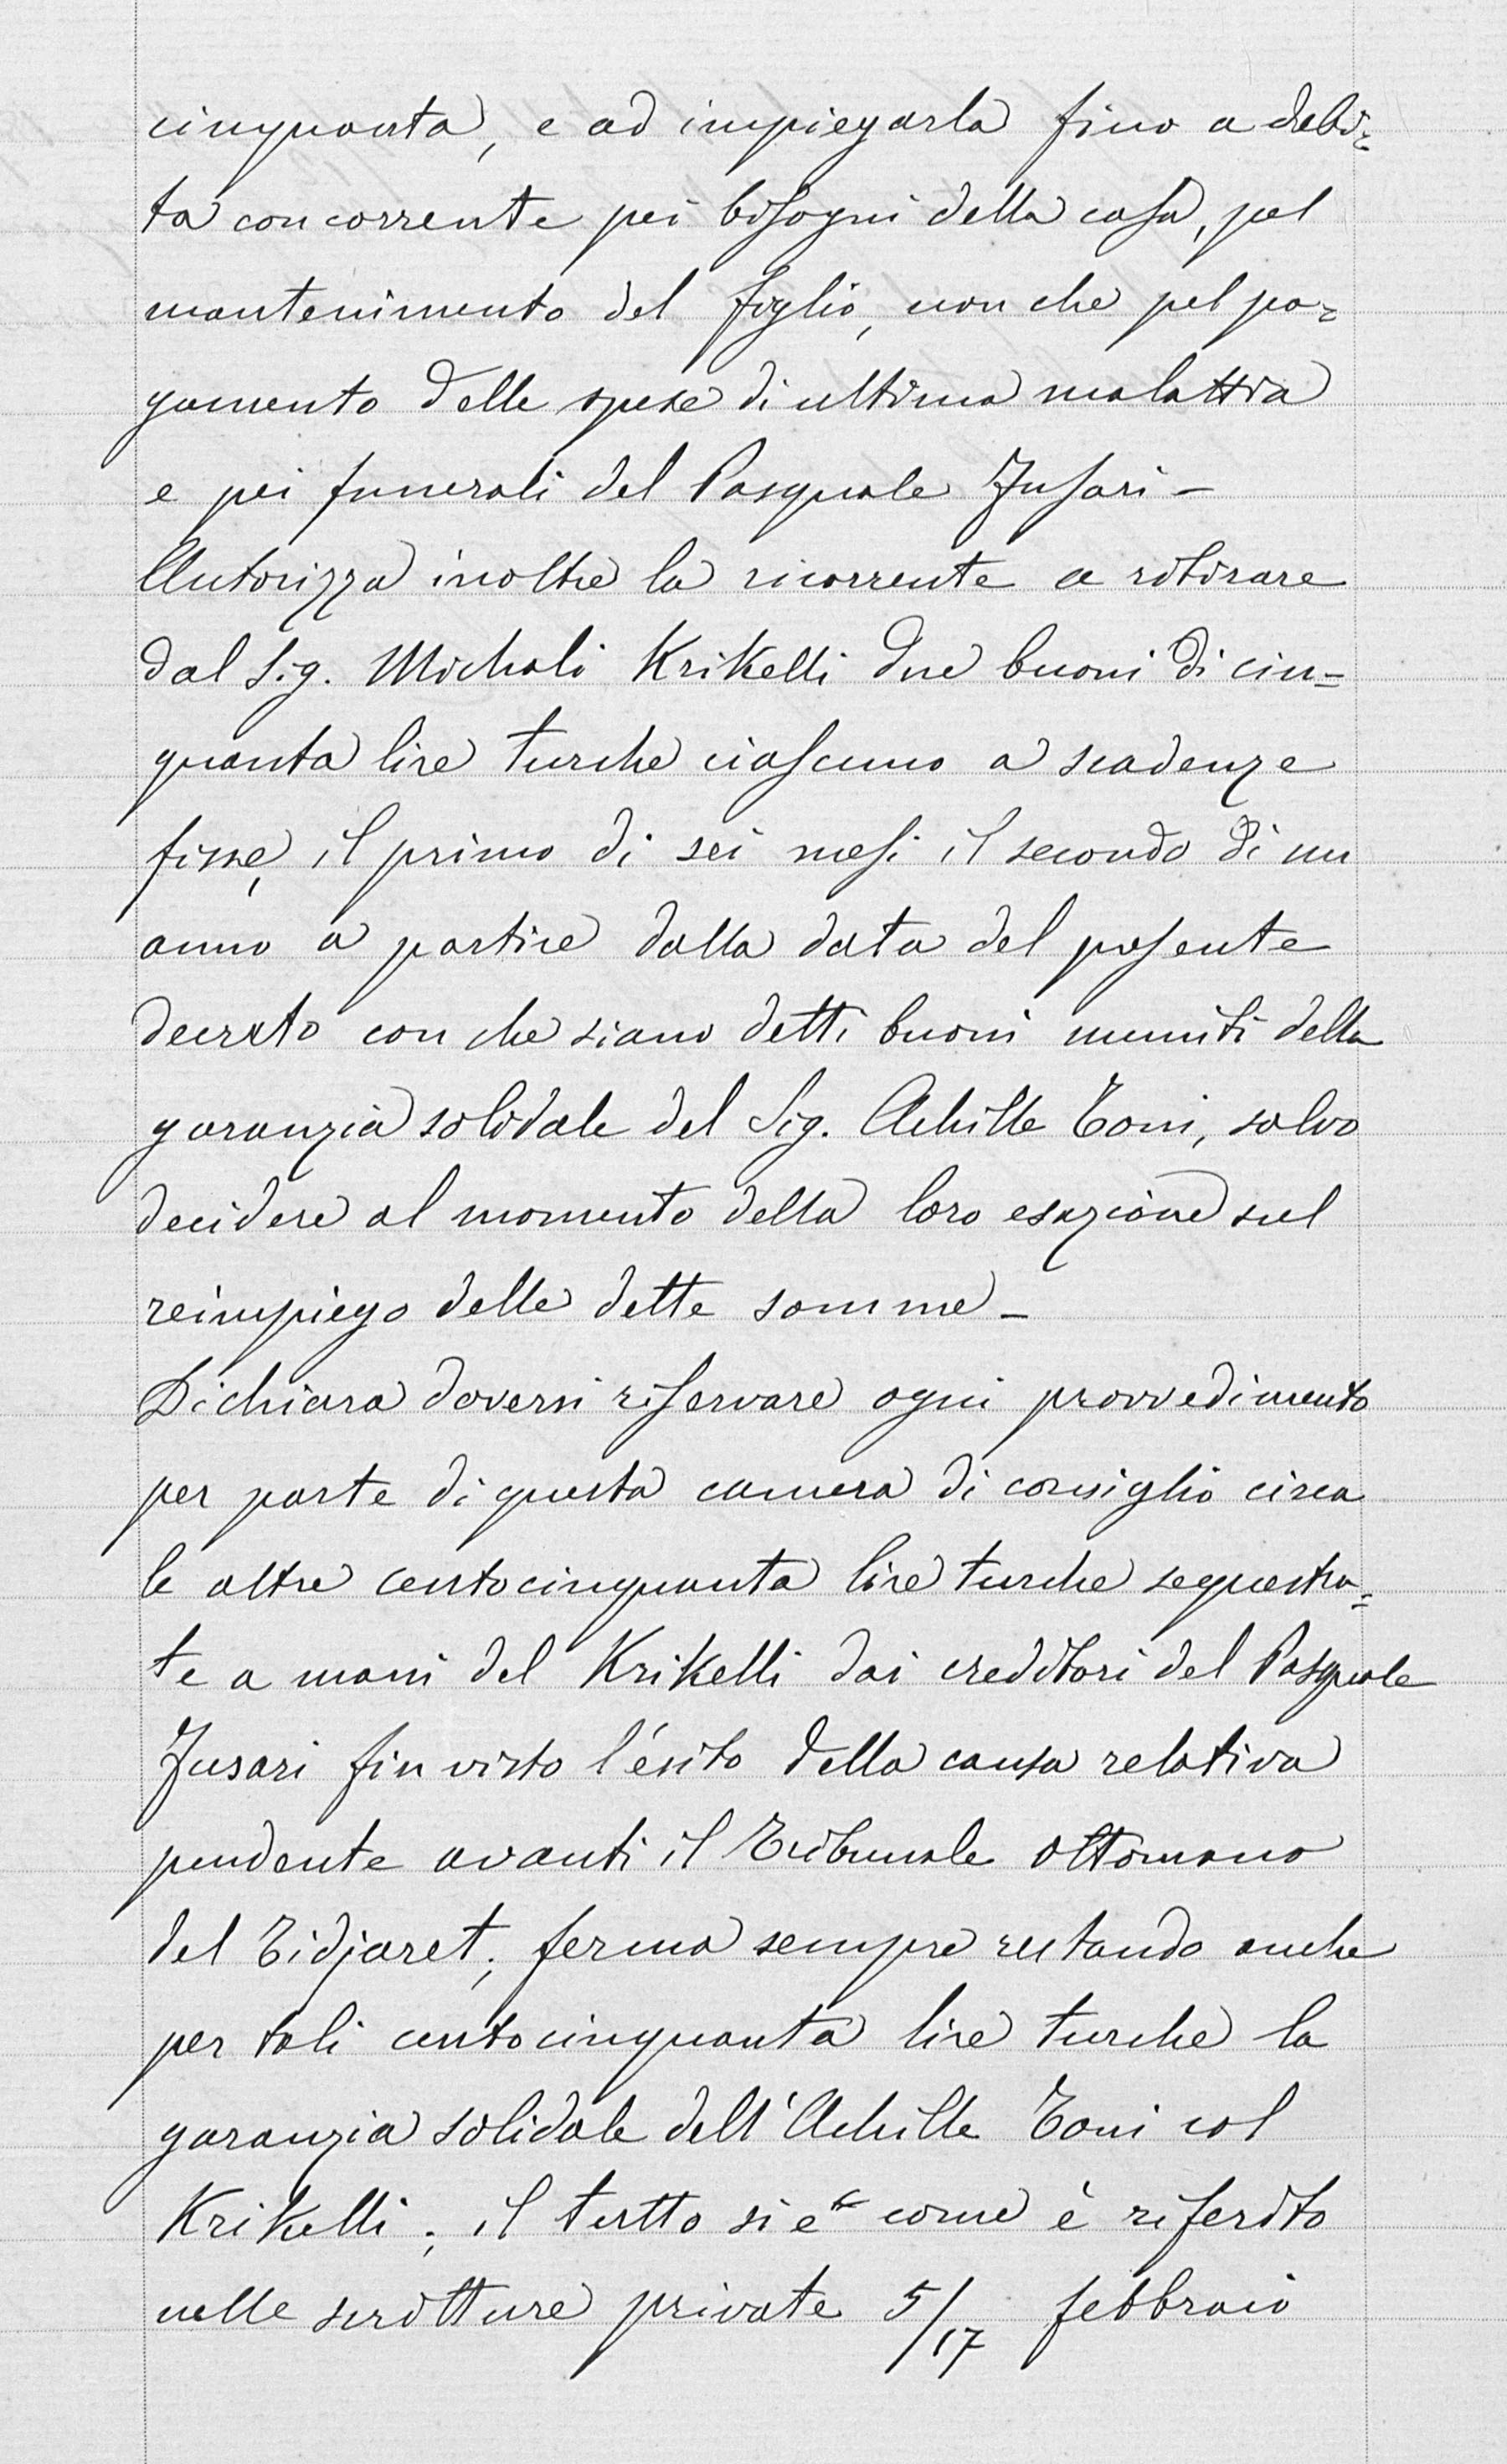 cinquanta, e ad impiegarla fino a debi=
ta concorrente pei bisogni della casa, pel
mantenimento del figlio, non che pel pa=
gamento delle spese di ultima malattia
e pei funerali del Pasquale Fusari -
Autorizza inoltre la ricorrente a ritirare
dal Sig. Michali Krikelli due buoni di cin=
quanta lire turche ciascuno a scadenze
fisse, il primo di sei mesi il secondo di un
anno a partire dalla data del presente
decreto con che siano detti buoni muniti della
garanzia solidale del Sig. Achille Toni, salvo
decidere al momento della loro esazione sul
reimpiego delle dette somme -
Dichiara doversi riservare ogni provvedimento
per parte di questa camera di consiglio circa
le altre centocinquanta lire turche sequestra=
te a mani del Krikelli dai creditori del Pasquale
Fusari fin visto l'ésito della causa relativa
pendente avanti il Tribunale Ottomano
del Tidjaret; ferma sempre restando anche
per tali centocinquanta lire turche la
garanzia solidale dell'Achille Toni col
Krikelli; il tutto si e come è riferito
nelle scritture private 5/17 febbraio